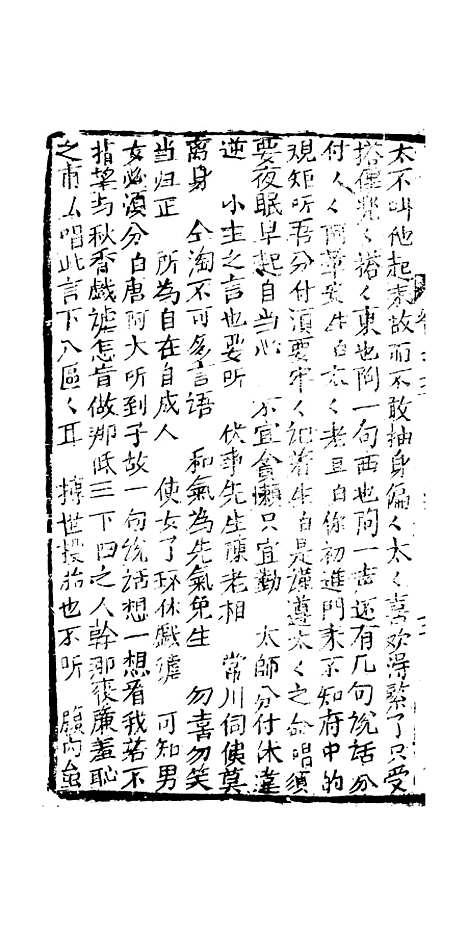 太不叫他起來故而不敢抽身偏々太々喜欢得緊了只受
搭僅眾々搭々東也问一句西也问一声还有几句說話分
付々々阿華安生白太々老旦白你初進門来不知府中的
規矩听吾分付須要牢々記着生白是謹遵太々之命唱須
要夜眠早起自当心 不宜貪懶只宜勤 太師分付休違
逆 小主之言也要听 伏事先生陳老相 常川伺候莫
离身 全淘不可多言語 和氣為先氣免生 勿喜勿笑
当归正 所為自在自成人 使女了环休戲謔 可知男
女必須分白唐阿大听到子故一句說話想一想看我若不
指望与秋香戲謔怎肯做那低三下四之人幹那喪廉羞恥
之市么唱此言下入區々耳 轉世投胎也不听